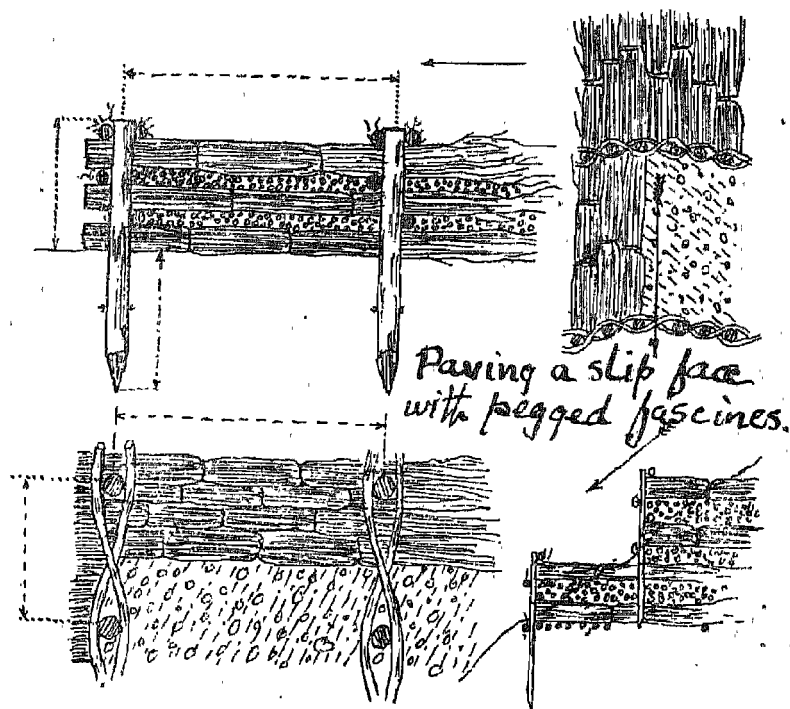 Paving a slip face
with pegged fascines.